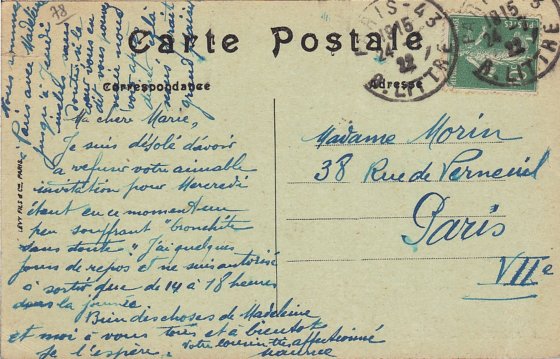 78
Carte Postale
Correspondance
Adresse
PARIS-43
1915
24
22
R. LITTRÉ
Ma chère Marie,
Je suis désolé d'avoir
a refuser votre aimable
invitation pour Mercredi
étant en ce moment un
peu souffrant "bronchite
sans doute" J'ai quelques
jours de repos et ne suis autorisé
à sortir que de 14 à 18 heures
dans la journée
Bien des choses de Madeleine
et moi à vous tous et à bientôt
je l'espère. Votre cousin très affectionné
Maurice
Madame Morin
38 Rue de Verneuil
Paris
VIIe
LÉVY FILS & Cie, PARIS
Paris avec Madeleine
jusqu'à Jeudi
sans
doute, si le
vous en
dit vous